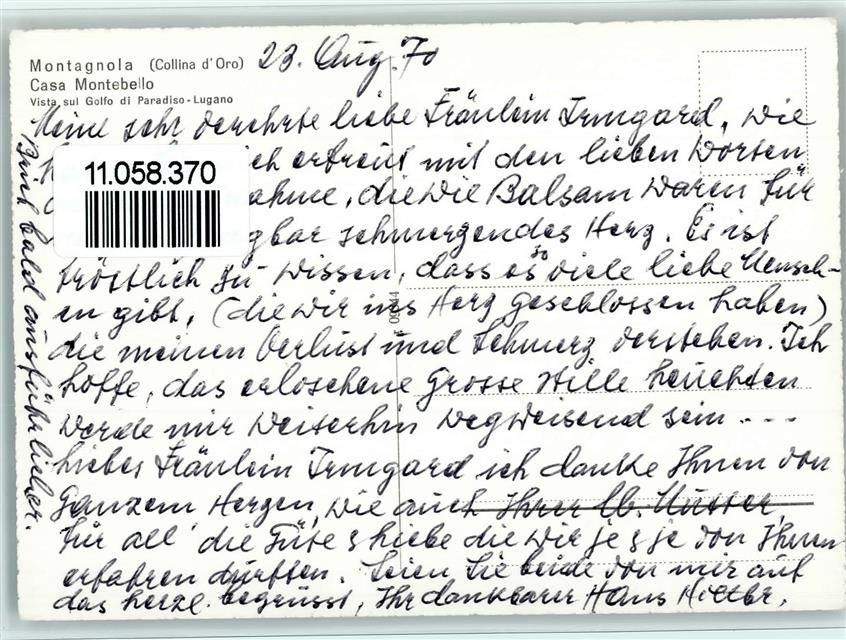 Montagnola (Collina d'Oro)
Casa Montebello
Vista sul Golfo di Paradiso - Lugano
23. Aug. 70
Meine sehr verehrte liebe Fräulein Irmgard, wie
ich erfreut mit den lieben Worten
ahme, die wie Balsam waren für
gbar schmerzendes Herz. Es ist
tröstlich zu wissen, dass es so viele liebe Mensch-
en gibt, (die wir ins Herz geschlossen haben)
die meinen Verlust und Schmerz verstehen. Ich
hoffe, das erloschene grosse stille Leuchten
werde mir weiterhin wegweisend sein - - -
Liebes Fräulein Irmgard ich danke Ihnen von
ganzem Herzen, wie auch Ihrer lb. Mutter,
für all' die Güte & Liebe die wir je & je von Ihnen
erfahren durften. Seien Sie beide von mir auf
das herzl. begrüsst, Ihr dankbarer Hans
Brief bald ausführlicher.
11.058.370